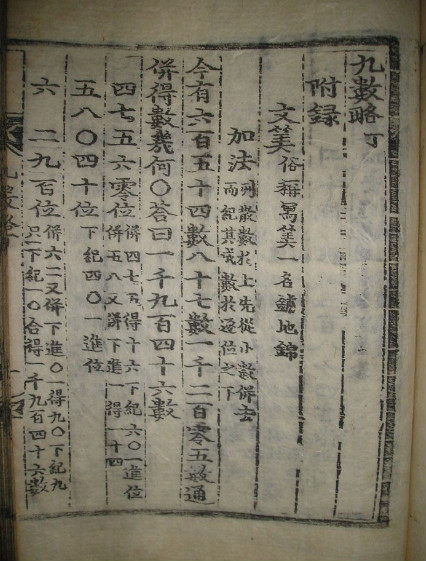 九數略丁
附録
文筭俗稱寫筭一名鋪地錦
加法列散數於上先從小數併去
而紀其成數於逐位之下
今有六百五十四數八十七數一千二百零五數通
併得數幾何〇答曰一千九百四十六數
四七五六零位併四七五得十六下紀六〇一進位
併五八又併下進一得一十四
五八〇四十位下紀四〇一進位
六二九百位併六二又併下進〇一得九〇下紀九
只一下紀一〇合得一千九百四十六數